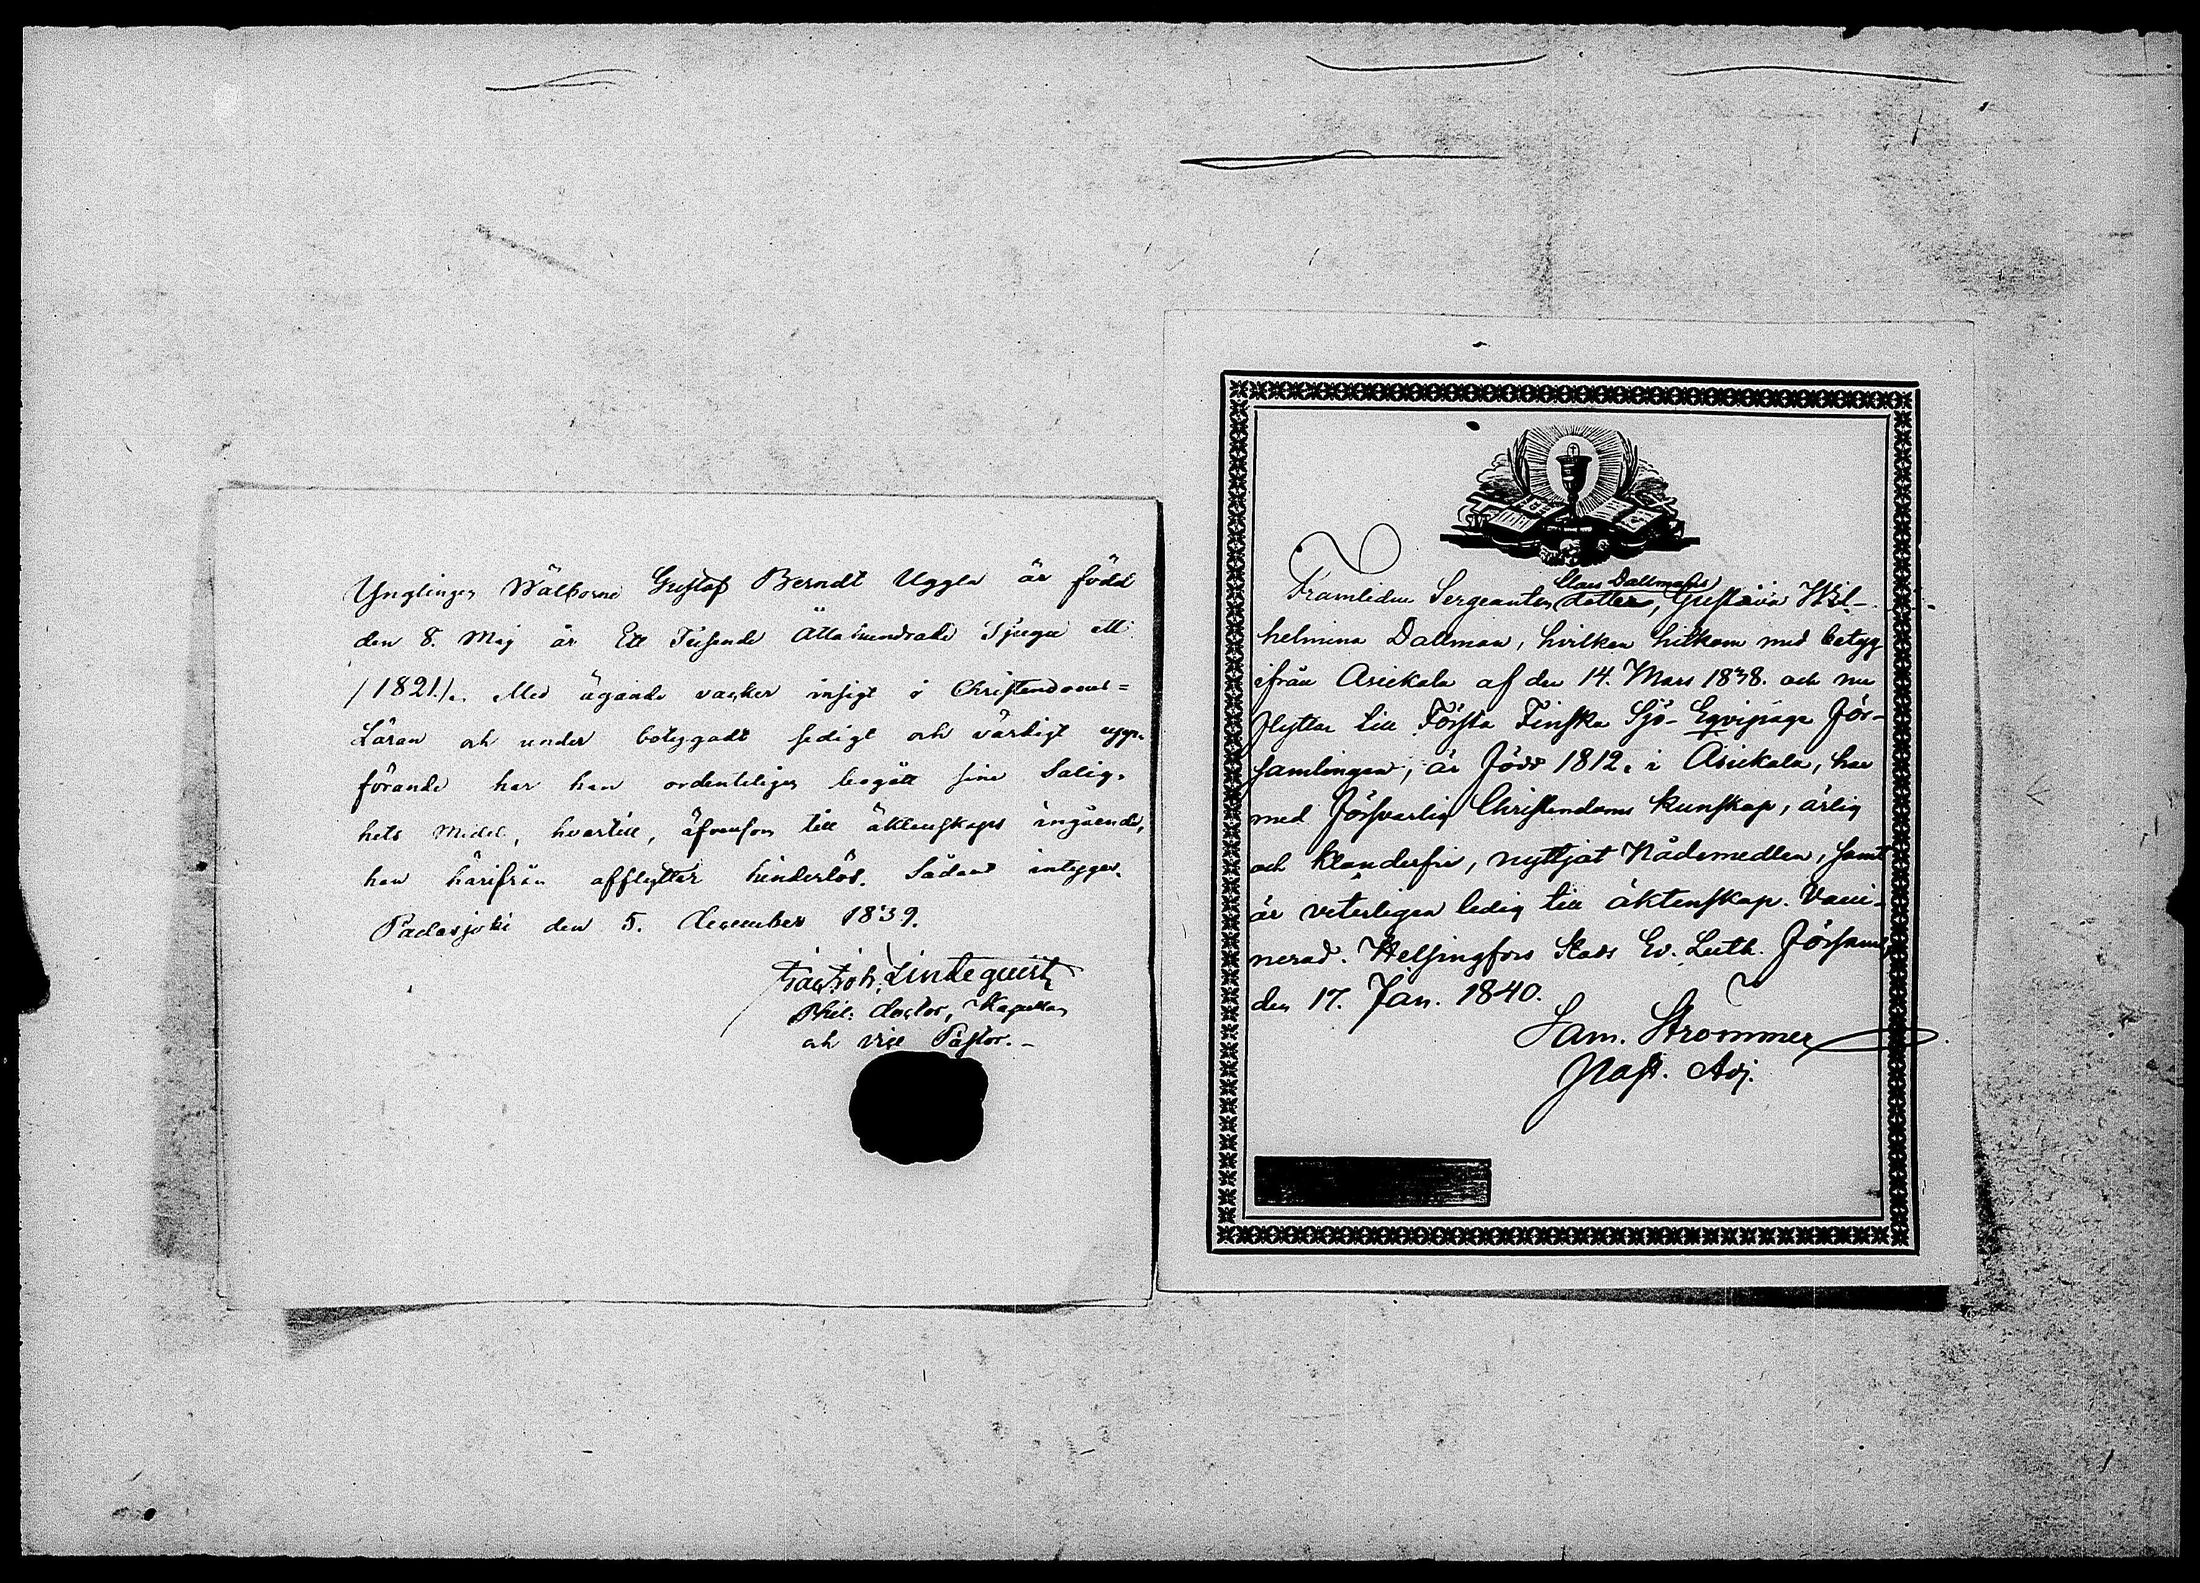 Ynglingen Wälborne Gustaf Berndt Uggla är född
den 8. Maj år Ett Tusende Åttahundrade Tjugu ett
/1821/. Med ägande vacker insigt i Christendoms=
Läran och under betygadt sedigt och värdigt upp-
förande har han ordenteligen begått sine Salig-
hets Medel, hvartill, äfvensom till äktenskaps ingående,
han härifrån afflyttar hinderlös. Sådant intygar.
Padasjoki den 5. December 1839.
Joh. Lindequist
Phil: doctor, Kapellan
och vice Pastor.
Claes Dallmans
Framlidne Sergeanten dotter, Gustava Wil-
helmina Dallman, hvilken hitkom med betyg
ifrån Asickala af den 14. Mars 1838. och nu
flyttar till Första Finska Sjö-Eqvipage För-
samlingen, är född 1812. i Asickala, har
med försvarlig Christendoms kunskap, ärlig
och klanderfri, nyttjat Nådemedlen, samt
är veterligen ledig till äktenskap. Vacci-
nerad. Helsingfors Stads Ev. Luth. Församl.
den 17. Jan. 1840.
Sam. Strommer
Past. Adj.